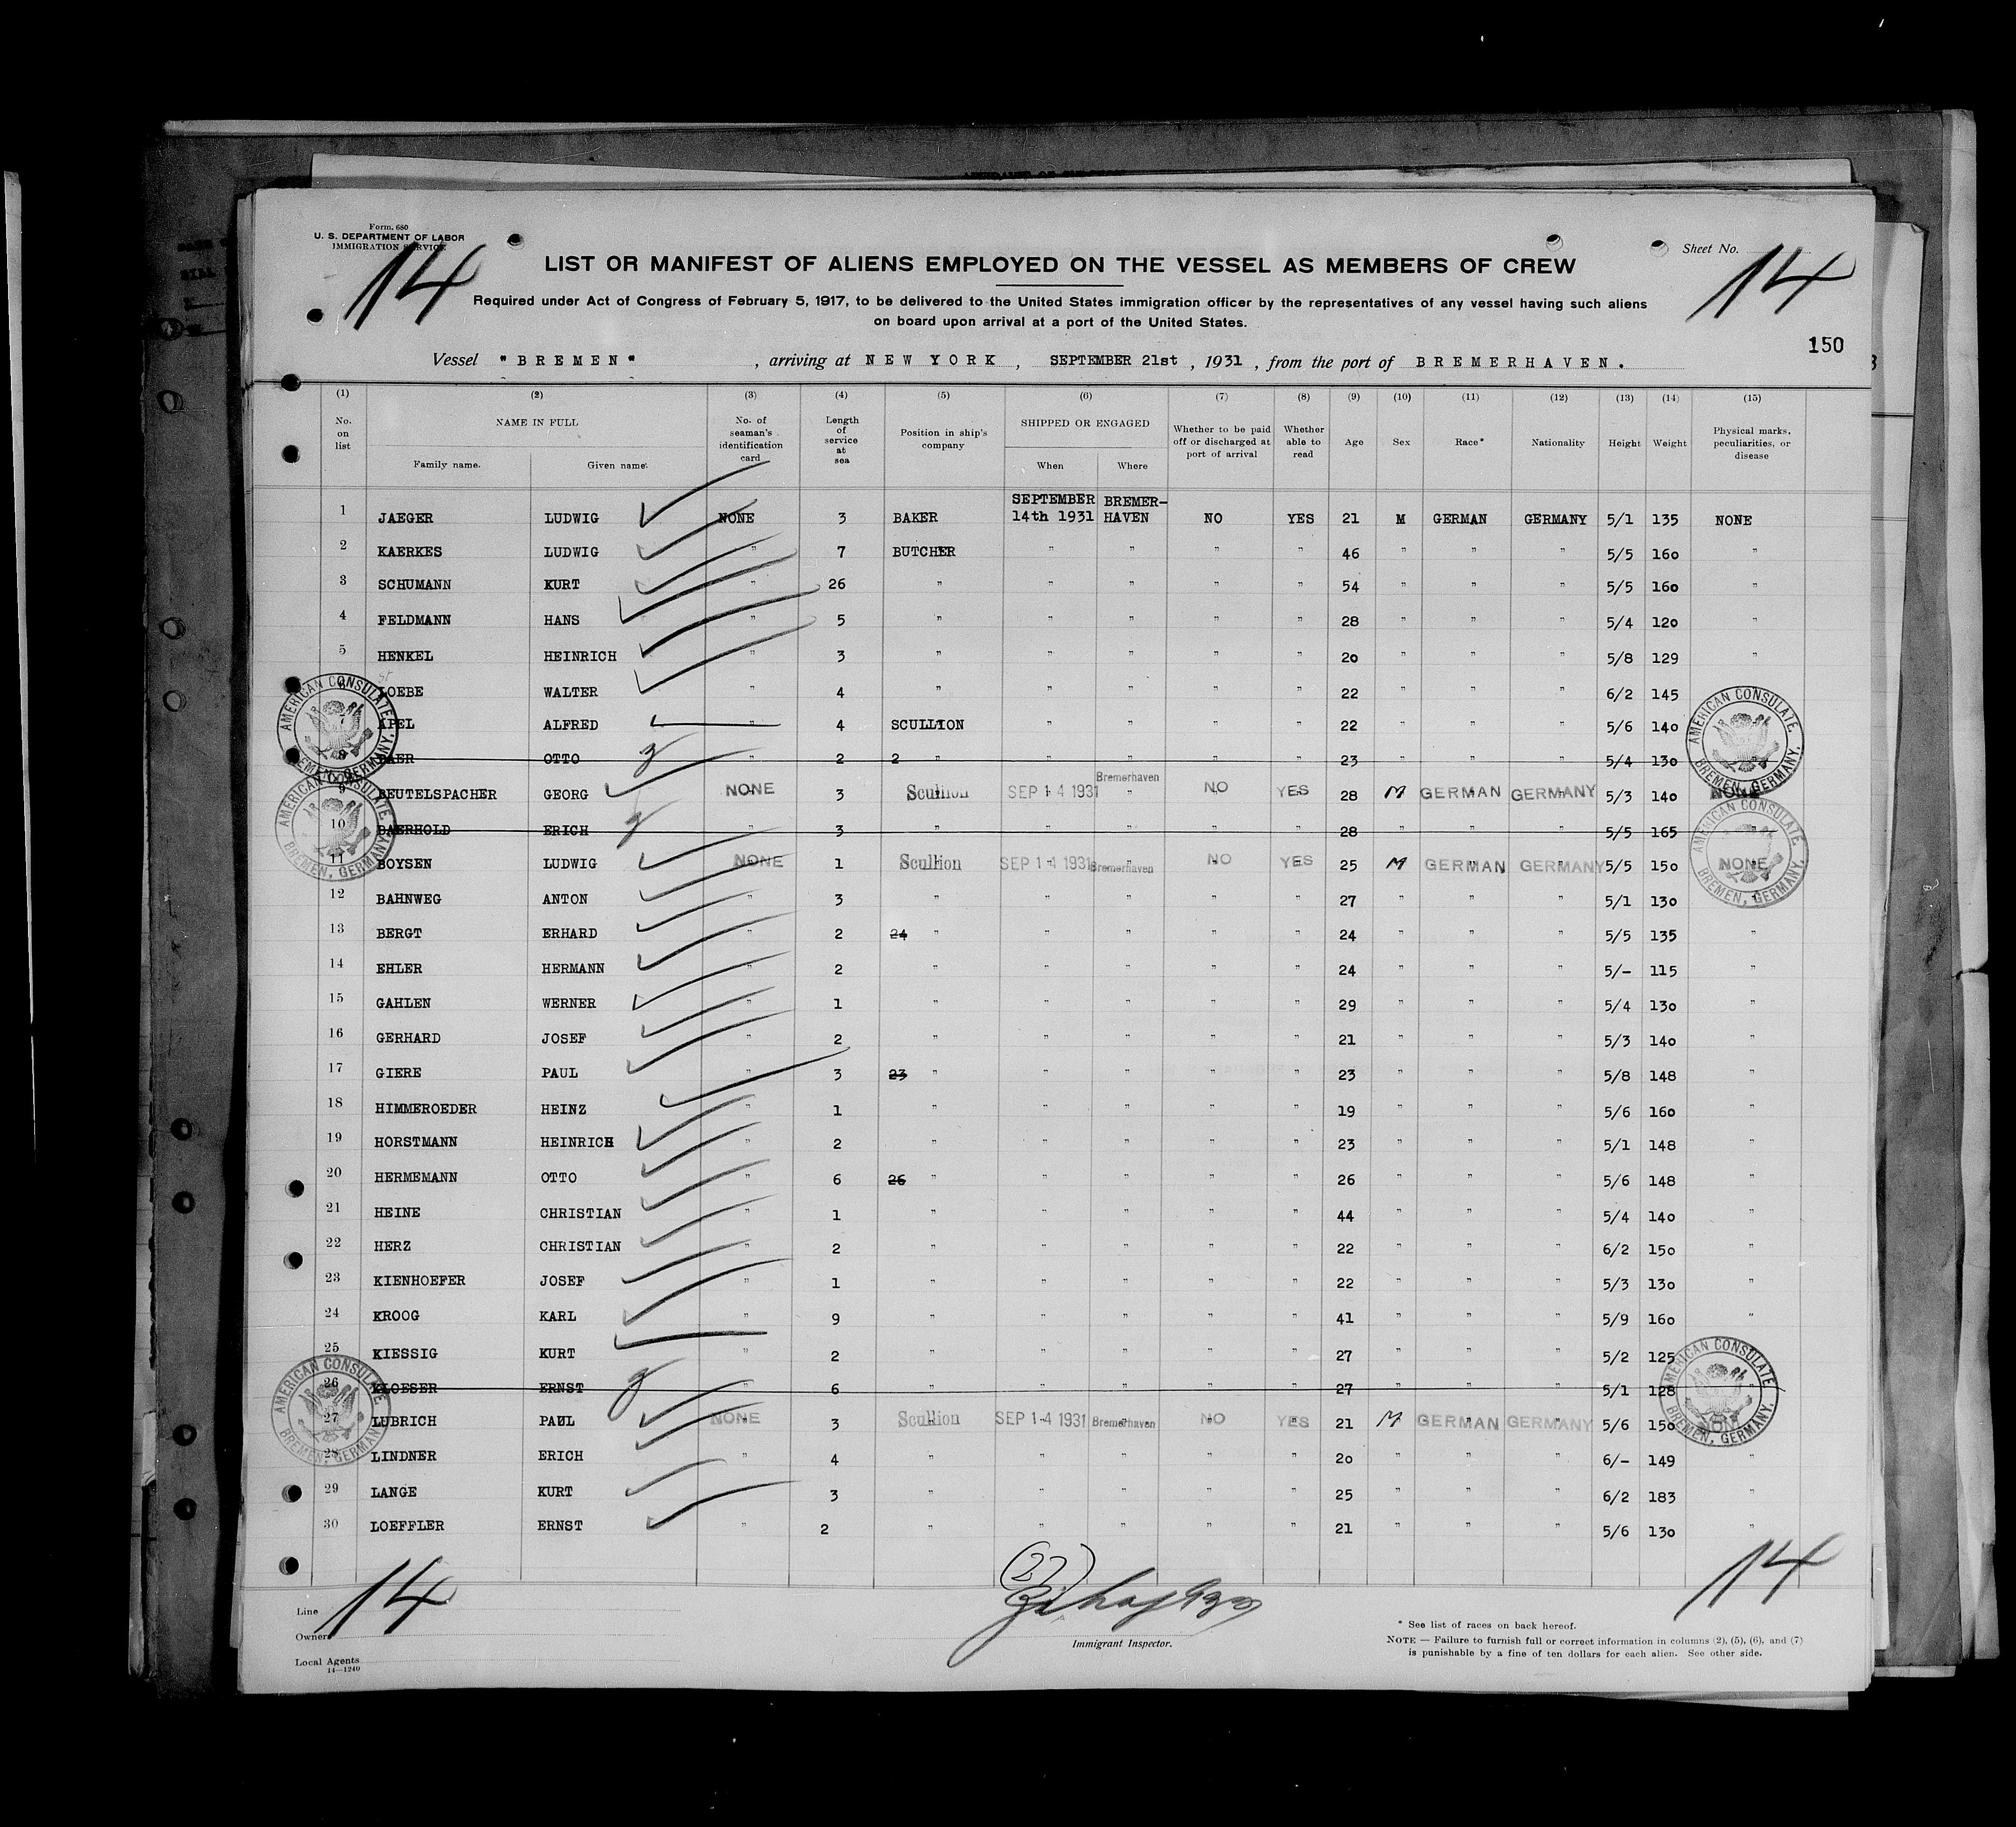 Form. 680
U. S. DEPARTMENT OF LABOR
IMMIGRATION SERVICE
14
Sheet No. 14
LIST OR MANIFEST OF ALIENS EMPLOYED ON THE VESSEL AS MEMBERS OF CREW
Required under Act of Congress of February 5, 1917, to be delivered to the United States immigration officer by the representatives of any vessel having such aliens
on board upon arrival at a port of the United States.
150
Vessel "BREMEN" , arriving at NEW YORK , SEPTEMBER 21st , 1931 , from the port of BREMERHAVEN.
(1) (2) (3) (4) (5) (6) (7) (8) (9) (10) (11) (12) (13) (14) (15)
No. on list NAME IN FULL Family name. Given name. No. of seaman's identification card Length of service at sea Position in ship's company SHIPPED OR ENGAGED When Where Whether to be paid off or discharged at port of arrival Whether able to read Age Sex Race* Nationality Height Weight Physical marks, peculiarities, or disease
1 JAEGER LUDWIG NONE 3 BAKER SEPTEMBER 14th 1931 BREMER-HAVEN NO YES 21 M GERMAN GERMANY 5/1 135 NONE
2 KAERKES LUDWIG " 7 BUTCHER " " " " 46 " " " 5/5 160 "
3 SCHUMANN KURT " 26 " " " " " 54 " " " 5/5 160 "
4 FELDMANN HANS " 5 " " " " " 28 " " " 5/4 120 "
5 HENKEL HEINRICH " 3 " " " " " 20 " " " 5/8 129 "
6 LOEBE WALTER " 4 " " " " " 22 " " " 6/2 145
7 APEL ALFRED " 4 SCULLION " " " " 22 " " " 5/6 140
8 BAER OTTO " 2 2 " " " " " 23 " " " 5/4 130
9 BEUTELSPACHER GEORG NONE 3 Scullion SEP 14 1931 Bremerhaven NO YES 28 M GERMAN GERMANY 5/3 140 NONE
10 BAERHOLD ERICH " 3 " " " " " 28 " " " 5/5 165 "
11 BOYSEN LUDWIG NONE 1 Scullion SEP 14 1931 Bremerhaven NO YES 25 M GERMAN GERMANY 5/5 150 NONE
12 BAHNWEG ANTON " 3 " " " " " 27 " " " 5/1 130 "
13 BERGT ERHARD " 2 24 " " " " " 24 " " " 5/5 135 "
14 EHLER HERMANN " 2 " " " " " 24 " " " 5/- 115 "
15 GAHLEN WERNER " 1 " " " " " 29 " " " 5/4 130 "
16 GERHARD JOSEF " 2 " " " " " 21 " " " 5/3 140 "
17 GIERE PAUL " 3 23 " " " " " 23 " " " 5/8 148 "
18 HIMMEROEDER HEINZ " 1 " " " " " 19 " " " 5/6 160 "
19 HORSTMANN HEINRICH " 2 " " " " " 23 " " " 5/1 148 "
20 HERMEMANN OTTO " 6 26 " " " " " 26 " " " 5/6 148 "
21 HEINE CHRISTIAN " 1 " " " " " 44 " " " 5/4 140 "
22 HERZ CHRISTIAN " 2 " " " " " 22 " " " 6/2 150 "
23 KIENHOEFER JOSEF " 1 " " " " " 22 " " " 5/3 130 "
24 KROOG KARL " 9 " " " " " 41 " " " 5/9 160 "
25 KIESSIG KURT " 2 " " " " " 27 " " " 5/2 125 "
26 KLOESER ERNST " 6 " " " " " 27 " " " 5/1 128 "
27 LUBRICH PAUL NONE 3 Scullion SEP 14 1931 Bremerhaven NO YES 21 M GERMAN GERMANY 5/6 150 NONE
28 LINDNER ERICH " 4 " " " " " 20 " " " 6/- 149 "
29 LANGE KURT " 3 " " " " " 25 " " " 6/2 183 "
30 LOEFFLER ERNST " 2 " " " " " 21 " " " 5/6 130 "
AMERICAN CONSULATE. BREMEN, GERMANY.
AMERICAN CONSULATE. BREMEN, GERMANY.
AMERICAN CONSULATE. BREMEN, GERMANY.
AMERICAN CONSULATE. BREMEN, GERMANY.
AMERICAN CONSULATE. BREMEN, GERMANY.
AMERICAN CONSULATE. BREMEN, GERMANY.
(27)
14
14
Line
Owner
Local Agents
14—1240
Immigrant Inspector.
* See list of races on back hereof.
NOTE — Failure to furnish full or correct information in columns (2), (5), (6), and (7)
is punishable by a fine of ten dollars for each alien. See other side.